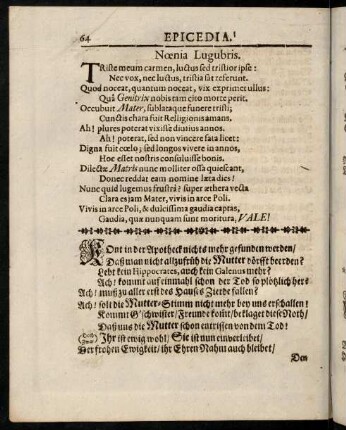 64 EPICEDIA.
Nœnia Lugubris.
TRiste meum carmen, luctus sed tristior ipse:
Nec vox, nec luctus, tristia sat referunt.
Quod noceat, quantum noceat, vix exprimet ullus:
Quâ Genitrix nobis tam cito morte perit.
Occubuit Mater, sublataque funere tristi;
Cunctis chara fuit Relligionis amans.
Ah! plures poterat vixisse diutius annos.
Ah! poterat, sed non vincere fata licet:
Digna fuit cœlo; sed longos vivere in annos,
Hoc esset nostris consuluisse bonis.
Dilectæ Matris nunc molliter ossa quiescant,
Donec reddat eam nomine læta dies!
Nunc quid lugemus frustrà? super æthera vecta
Clara es jam Mater, vivis in arce Poli.
Vivis in arce Poli, & dulcissima gaudia captas,
Gaudia, quæ nunquam sunt moritura, VALE!
KOnt in der Apotheck nichts mehr gefunden werden/
Daß man nicht allzufrüh die Mutter dörfft beerden?
Lebt kein Hippocrates, auch kein Galenus mehr?
Ach! kommt auf einmahl schon der Tod so plötzlich her?
Ach! muß zu aller erst des Hauses Zierde fallen?
Ach! solt die Mutter-Stimm nicht mehr bey uns erschallen!
Kommt G'schwister/ Freunde komt/ beklaget diese Noth/
Daß uns die Mutter schon entrissen von dem Tod!
Ihr ist ewig wohl/ Sie ist nun einverleibet/
Der frohen Ewigkeit/ ihr Ehren Nahm auch bleibet/
Von